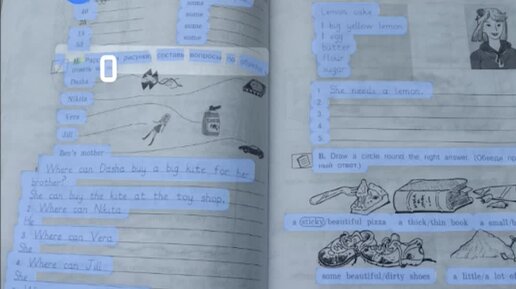 Dasha
Nikita
Vera
Jill
Ben's mother
Where can Dasha buy a big kite for her
brother?
She can buy the kite at the toy shop.
2. Where can Nikita
He
3. Where can Vera
She
4. Where can Jill
She
Lemon cake
1 big yellow lemon
1 egg
butter
flour
sugar
1. She needs a lemon.
2.
3.
4.
5.
B. Draw a circle round the right answer. (Обведи
ный ответ.)
a sticky/beautiful pizza
a thick/thin book
a small/
some beautiful/dirty shoes
a little/a lot of